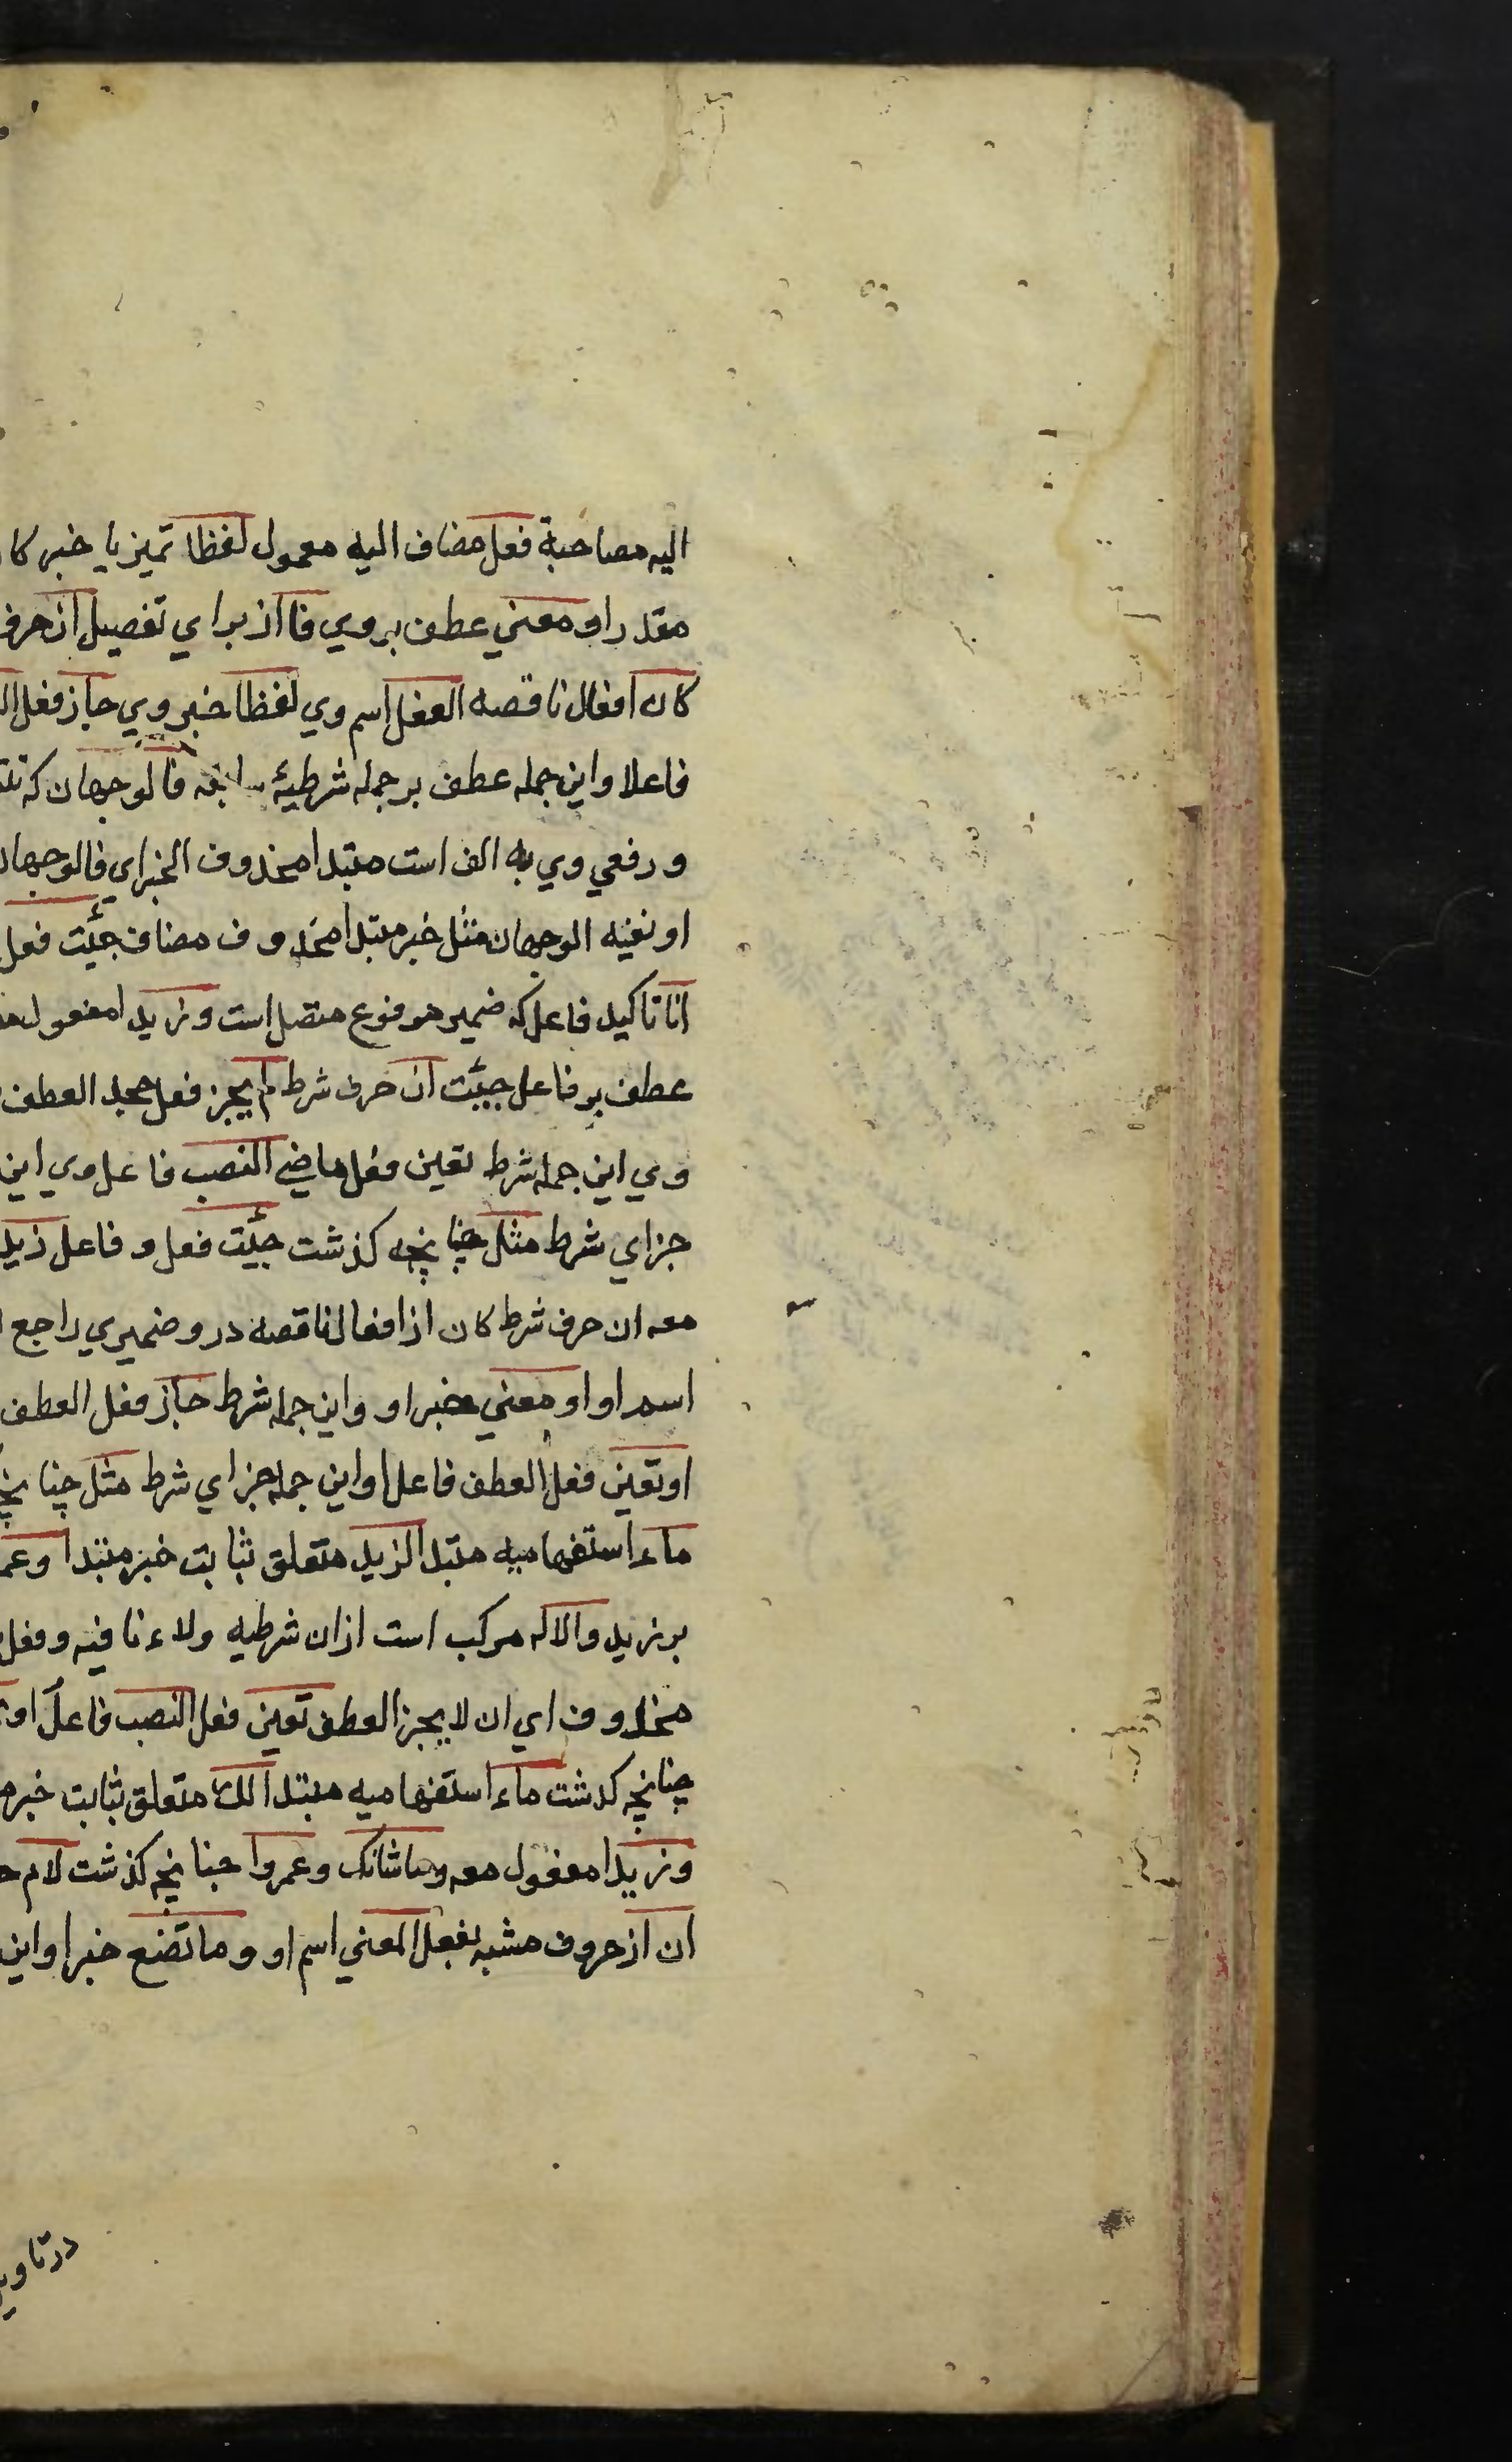 الیه مصاحبة فعل مضاف الیه معمول لفظا تمیز یا خبر کا
مقدر او معني عطف بروي فا از براي تفصیل ان حرف
کان افعال ناقصه الفعل اسم وي لفظا خبر وي جاز فعل
فاعلا واین جمله عطف بر جمله شرطیهٔ سابقه فالوجهان که
ورفعي وي به الف است مبتدا محذوف الخبر اي فالوجهان
او نفیه الوجهان مثل خبر مبتدا محذوف مضاف جئت فعل
انا تاکید فاعل که ضمیر مرفوع متصل است وزیدا مفعول
عطف بر فاعل جیئت ان حرف شرط لم یجز فعل جحد العطف
وي این جمله شرط تعین فعل ماضي النصب فاعل وي این
جزاي شرط مثل چنانچه کذشت جئت فعل و فاعل زید
معه ان حرف شرط کان از افعال ناقصه درو ضمیري راجع
اسم او او معني خبر او واین جمله شرط جاز فعل العطف
او تعین فعل العطف فاعل او این جمله جزاي شرط مثل چنانچ
ماء استفهامیه مبتدا لزید متعلق ثابت خبر مبتدا وعم
بر زید والا که مرکب است از ان شرطیه ولاء نافیه وفعل
محذوف اي ان لا یجز العطف تعین فعل النصب فاعل او
چنانچه کدشت ماء استفهامیه مبتدا لك متعلق ثابت خبر
وزیدا مفعول معه وماشانك وعمروا جنانچه کذشت لام
ان از حروف مشبه بفعل المعني اسم او وما تصنع خبر او این
درتاوی